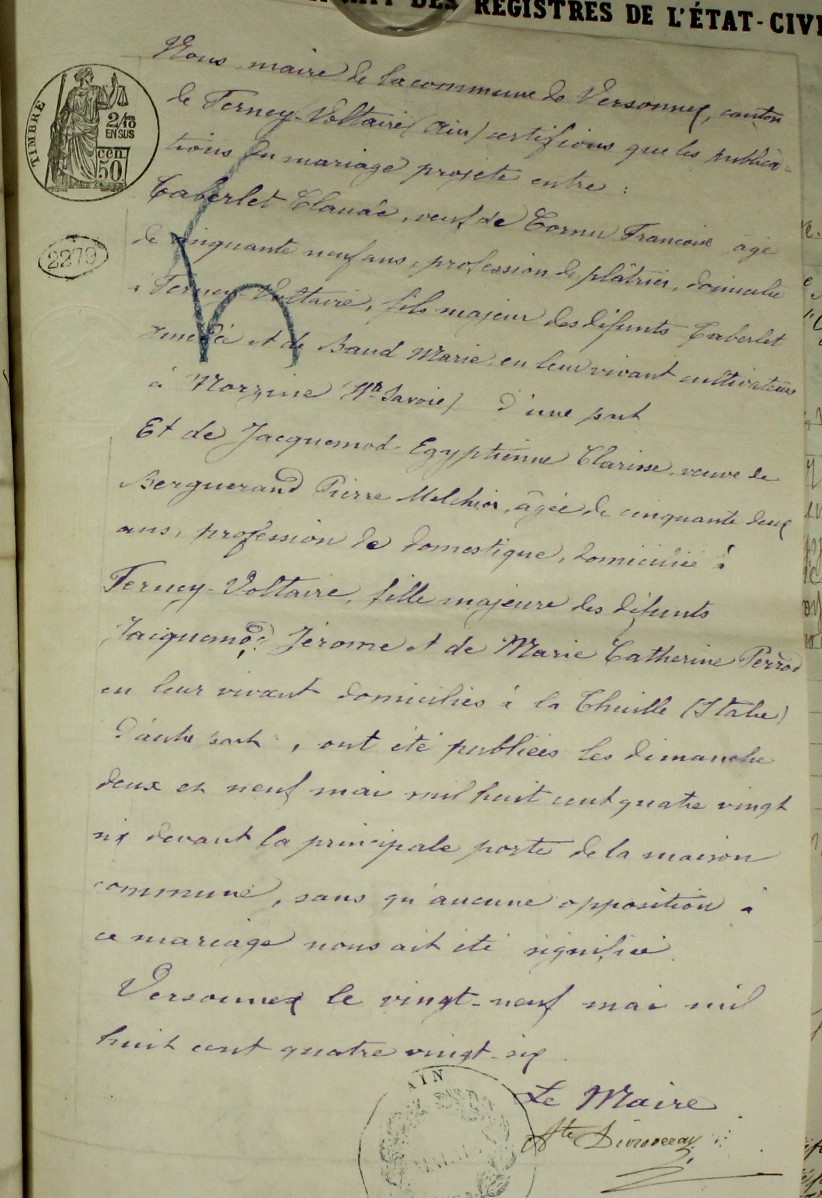 DES REGISTRES DE L'ÉTAT-CIVI
TIMBRE
2/10
EN SUS
cen.
50
2279
Nous maire de la commune de Versonnex, canton
de Ferney-Voltaire (Ain) certifions que les publica-
tions du mariage projeté entre :
Taberlet Claude, veuf de Cornu Francoise âgé
de cinquante neuf ans, profession de plâtrier, domicilié
à Ferney-Voltaire, fils majeur des défunts Taberlet
et de Baud Marie, en leur vivant cultivateurs
à Morzine (Hte Savoie) d'une part
Et de Jacquemod Egyptienne Clarisse, veuve de
Berguerand Pierre Melchior, âgée de cinquante deux
ans, profession de domestique, domiciliée à
Ferney-Voltaire, fille majeure des défunts
Jaiquemod Jérome et de Marie Catherine Perrod
en leur vivant domiciliés à la Thuille (Italie)
d'autre part, ont été publiées les dimanche
deux et neuf mai mil huit cent quatre vingt
six devant la principale porte de la maison
commune, sans qu'aucune opposition à
ce mariage nous ait été signifiée.
Versonnex le vingt-neuf mai mil
huit cent quatre vingt-six
Le Maire
AIN